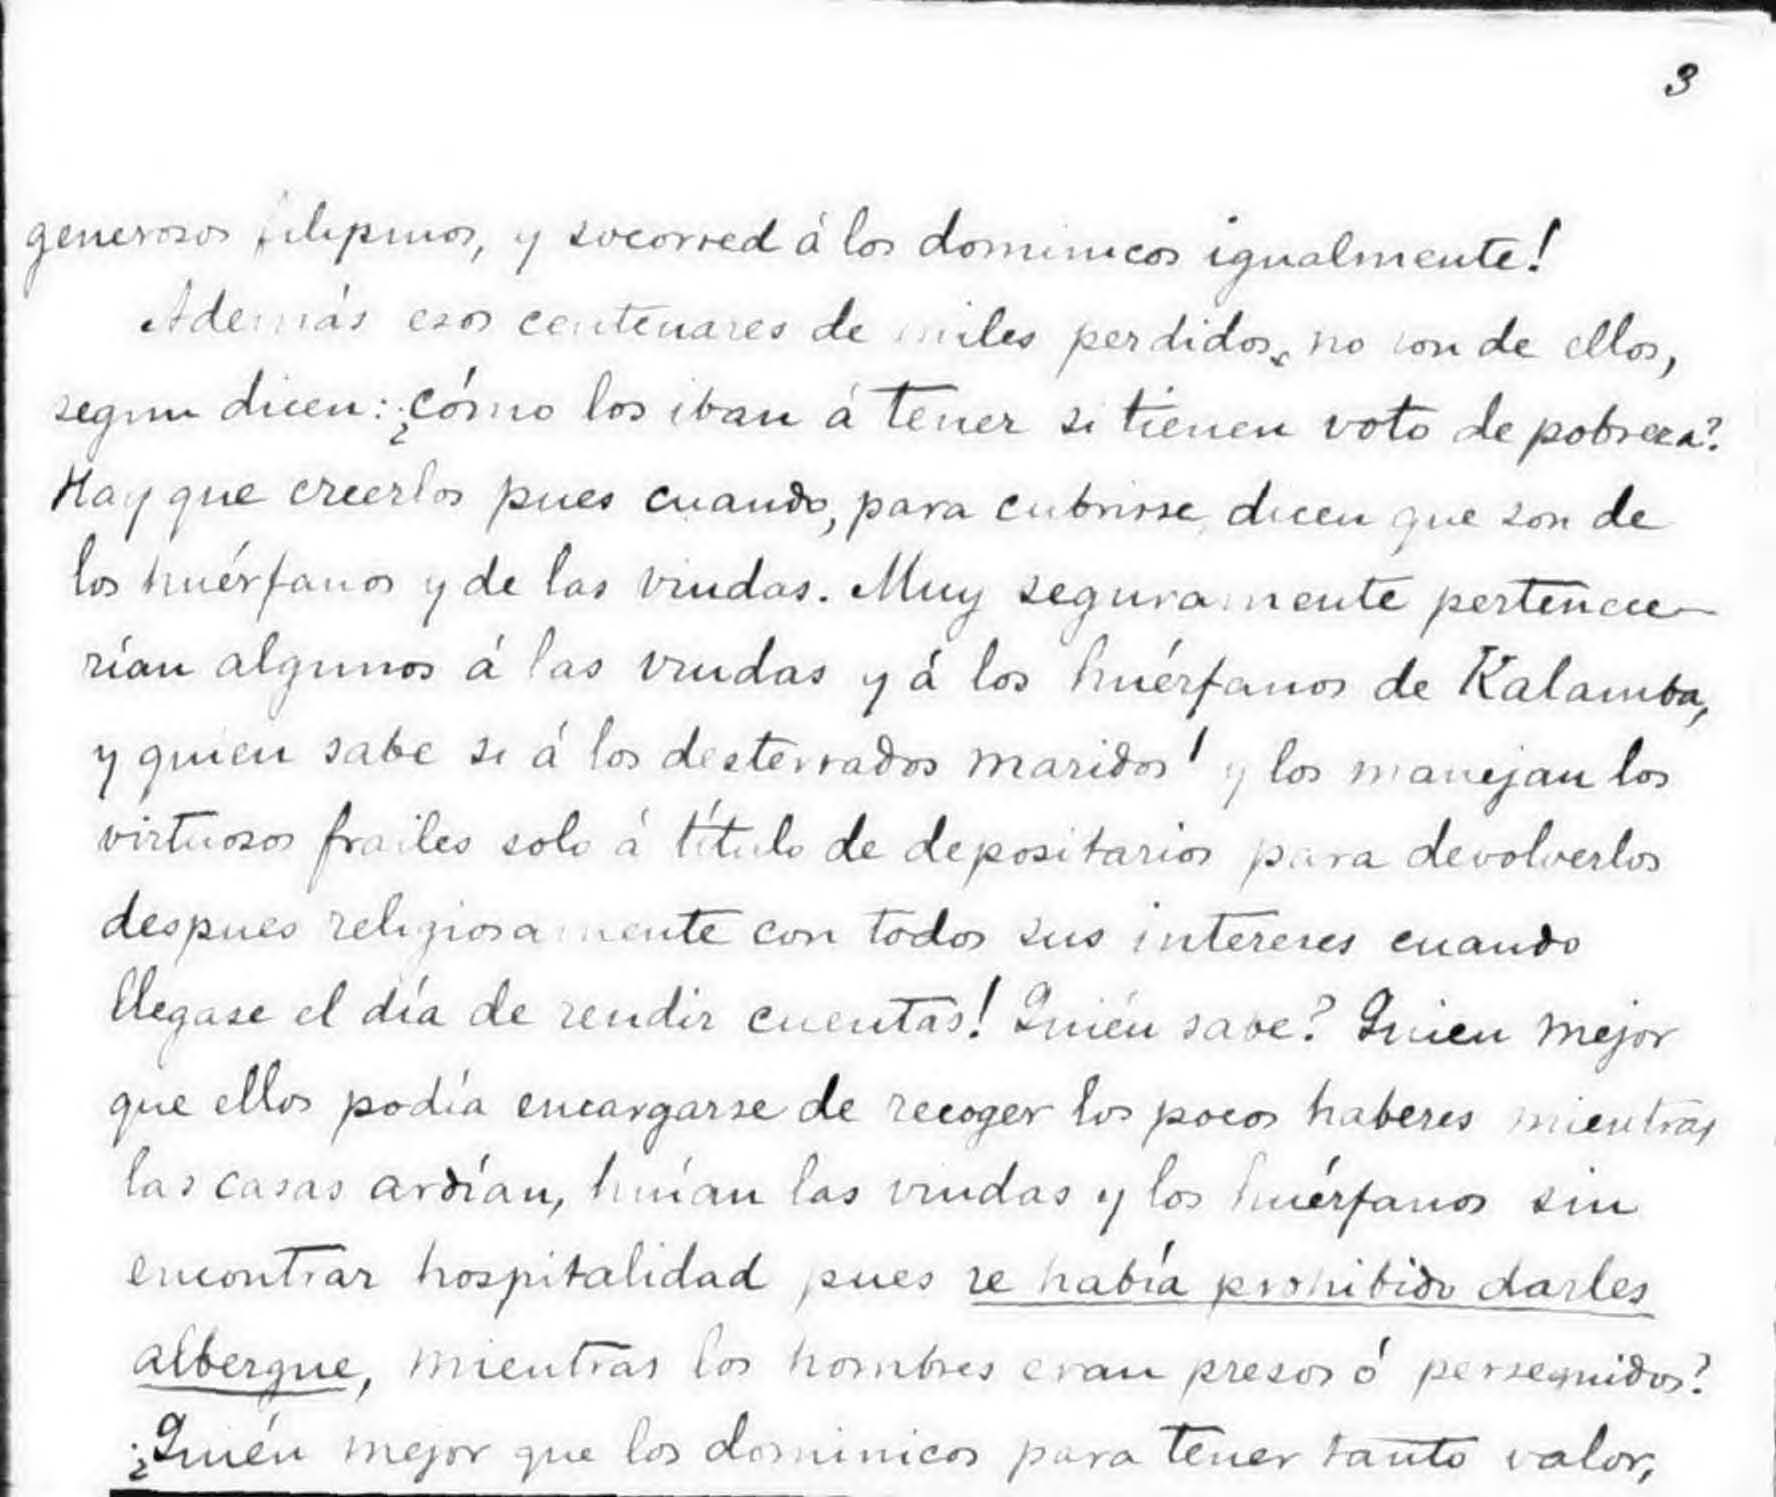 3
generosos filipinos, y socorred á los dominicos igualmente!
Además esos centenares de miles perdidos, no son de ellos,
segun dicen: ¿cómo los iban á tener si tienen voto de pobreza?
Hay que creerlos pues cuando, para cubrirse, dicen que son de
los huérfanos y de las viudas. Muy seguramente pertenece-
rían algunos á las viudas y á los huérfanos de Kalamba,
y quien sabe si á los desterrados maridos! y los manejan los
virtuosos frailes solo á título de depositarios para devolverlos
despues religiosamente con todos sus intereses cuando
llegase el día de rendir cuentas! Quién sabe? Quien mejor
que ellos podía encargarse de recoger los pocos haberes mientras
las casas ardían, huían las viudas y los huérfanos sin
encontrar hospitalidad pues se había prohibido darles
albergue, mientras los hombres eran presos ó perseguidos?
¿Quién mejor que los dominicos para tener tanto valor,